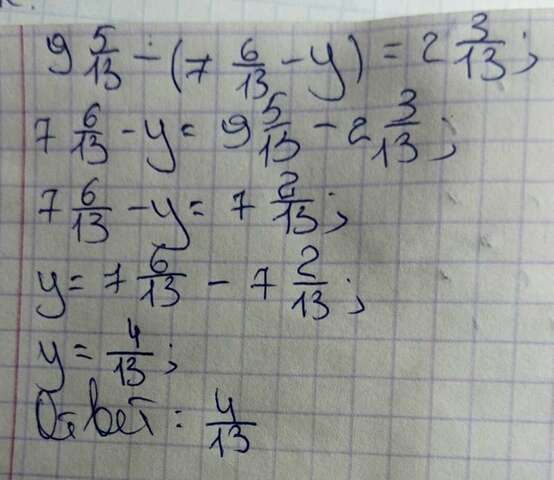 9 5/13 - (7 6/13 - y) = 2 3/13;
7 6/13 - y = 9 5/13 - 2 3/13;
7 6/13 - y = 7 2/13;
y = 7 6/13 - 7 2/13;
y = 4/13;
Ответ: 4/13